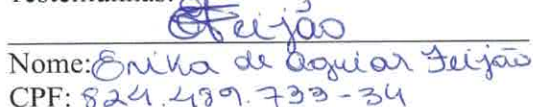 Testemunhas:
EFeijão
Nome: Erika de Aguiar Feijão
CPF: 824.489.733-34